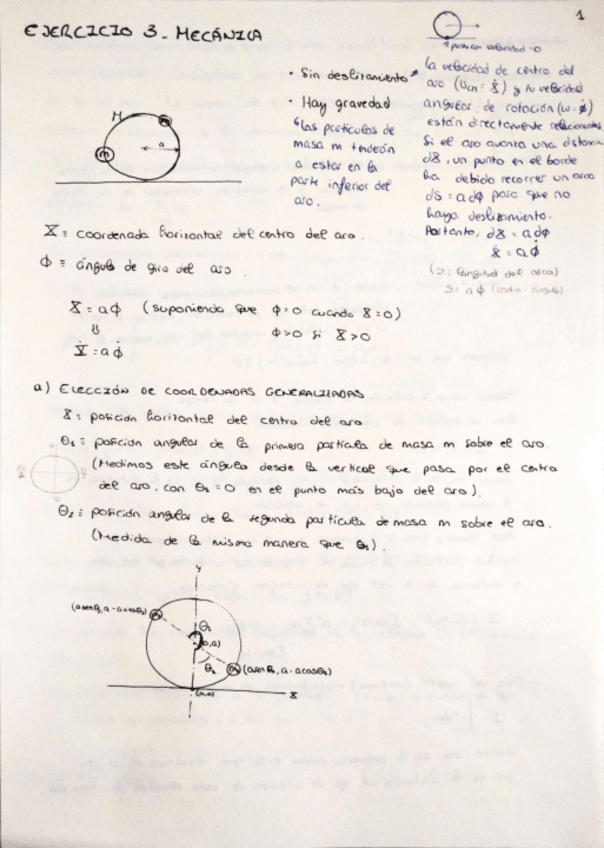 1
EJERCICIO 3. MECÁNICA
punto con velocidad = 0
• Sin deslizamiento*
• Hay gravedad
↳ las partículas de
masa m tenderán
a estar en la
parte inferior del
aro.
la velocidad de centro del
aro (Ucm = Ẋ) y su velocidad
angular de rotación (ω = φ̇)
están directamente relacionadas
Si el aro avanza una distancia
dX, un punto en el borde
ha debido recorrer un arco
dS = a dφ para que no
haya deslizamiento.
Portanto, dX = a dφ
Ẋ = a φ̇
(S: longitud del arco)
S = a φ (radio · ángulo)
M
m
m
a
X ≡ coordenada horizontal del centro del aro.
φ ≡ ángulo de giro del aro.
X = a φ (suponiendo que φ = 0 cuando X = 0)
⇓ φ > 0 si X > 0
Ẋ = a φ̇
a) ELECCIÓN DE COORDENADAS GENERALIZADAS
X: posición horizontal del centro del aro
θ₁ ≡ posición angular de la primera partícula de masa m sobre el aro.
(Medimos este ángulo desde la vertical que pasa por el centro
del aro, con θ₁ = 0 en el punto más bajo del aro).
θ₂ ≡ posición angular de la segunda partícula de masa m sobre el aro.
(Medida de la misma manera que θ₁).
Y
m
θ₁
(0,a)
θ₂
m
X